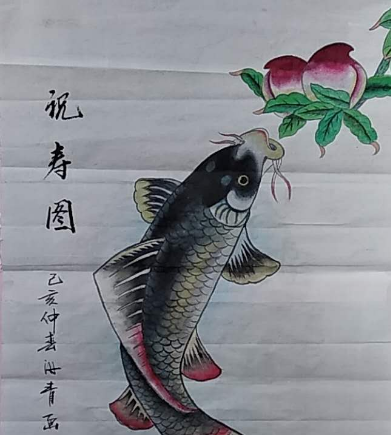 祝寿图
己亥仲春海青画